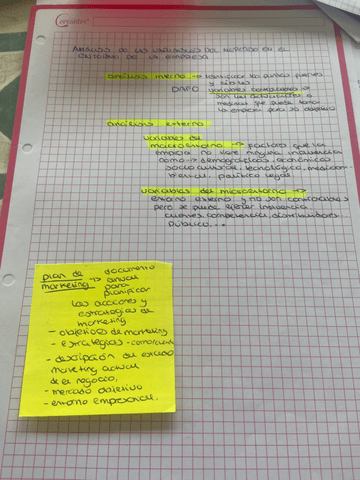 Cervantes
ANÁLISIS DE LAS VARIABLES DEL MERCADO EN EL
ENTORNO DE LA EMPRESA
análisis interno → identificar los puntos fuertes
y
DAFO variables controlables →
son las actuaciones o
medidas que puede tomar
la empresa para su objetivo
análisis externo
variables del
macroentorno → factores que la
empresa no tiene ninguna influencia
como → demográficos, económicos
sociocultural, tecnológica, medioam-
biental, político legal.
variables del microentorno →
entorno externo y no son controlables
pero se puede ejercer influencia
clientes, competencia, distribuidores
público...
plan de marketing → documento
anual
para
planificar
las acciones y
estrategias de
marketing
- objetivos de marketing
- estrategias - comerciales
- descripción del entorno
marketing actual
de el negocio,
- mercado objetivo
- entorno empresarial.